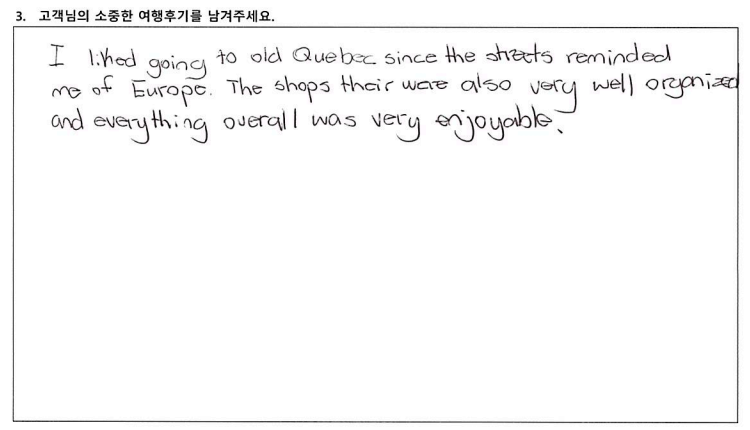 3. 고객님의 소중한 여행후기를 남겨주세요.
I liked going to old Quebec since the streets reminded
me of Europe. The shops their were also very well organized
and everything overall was very enjoyable.